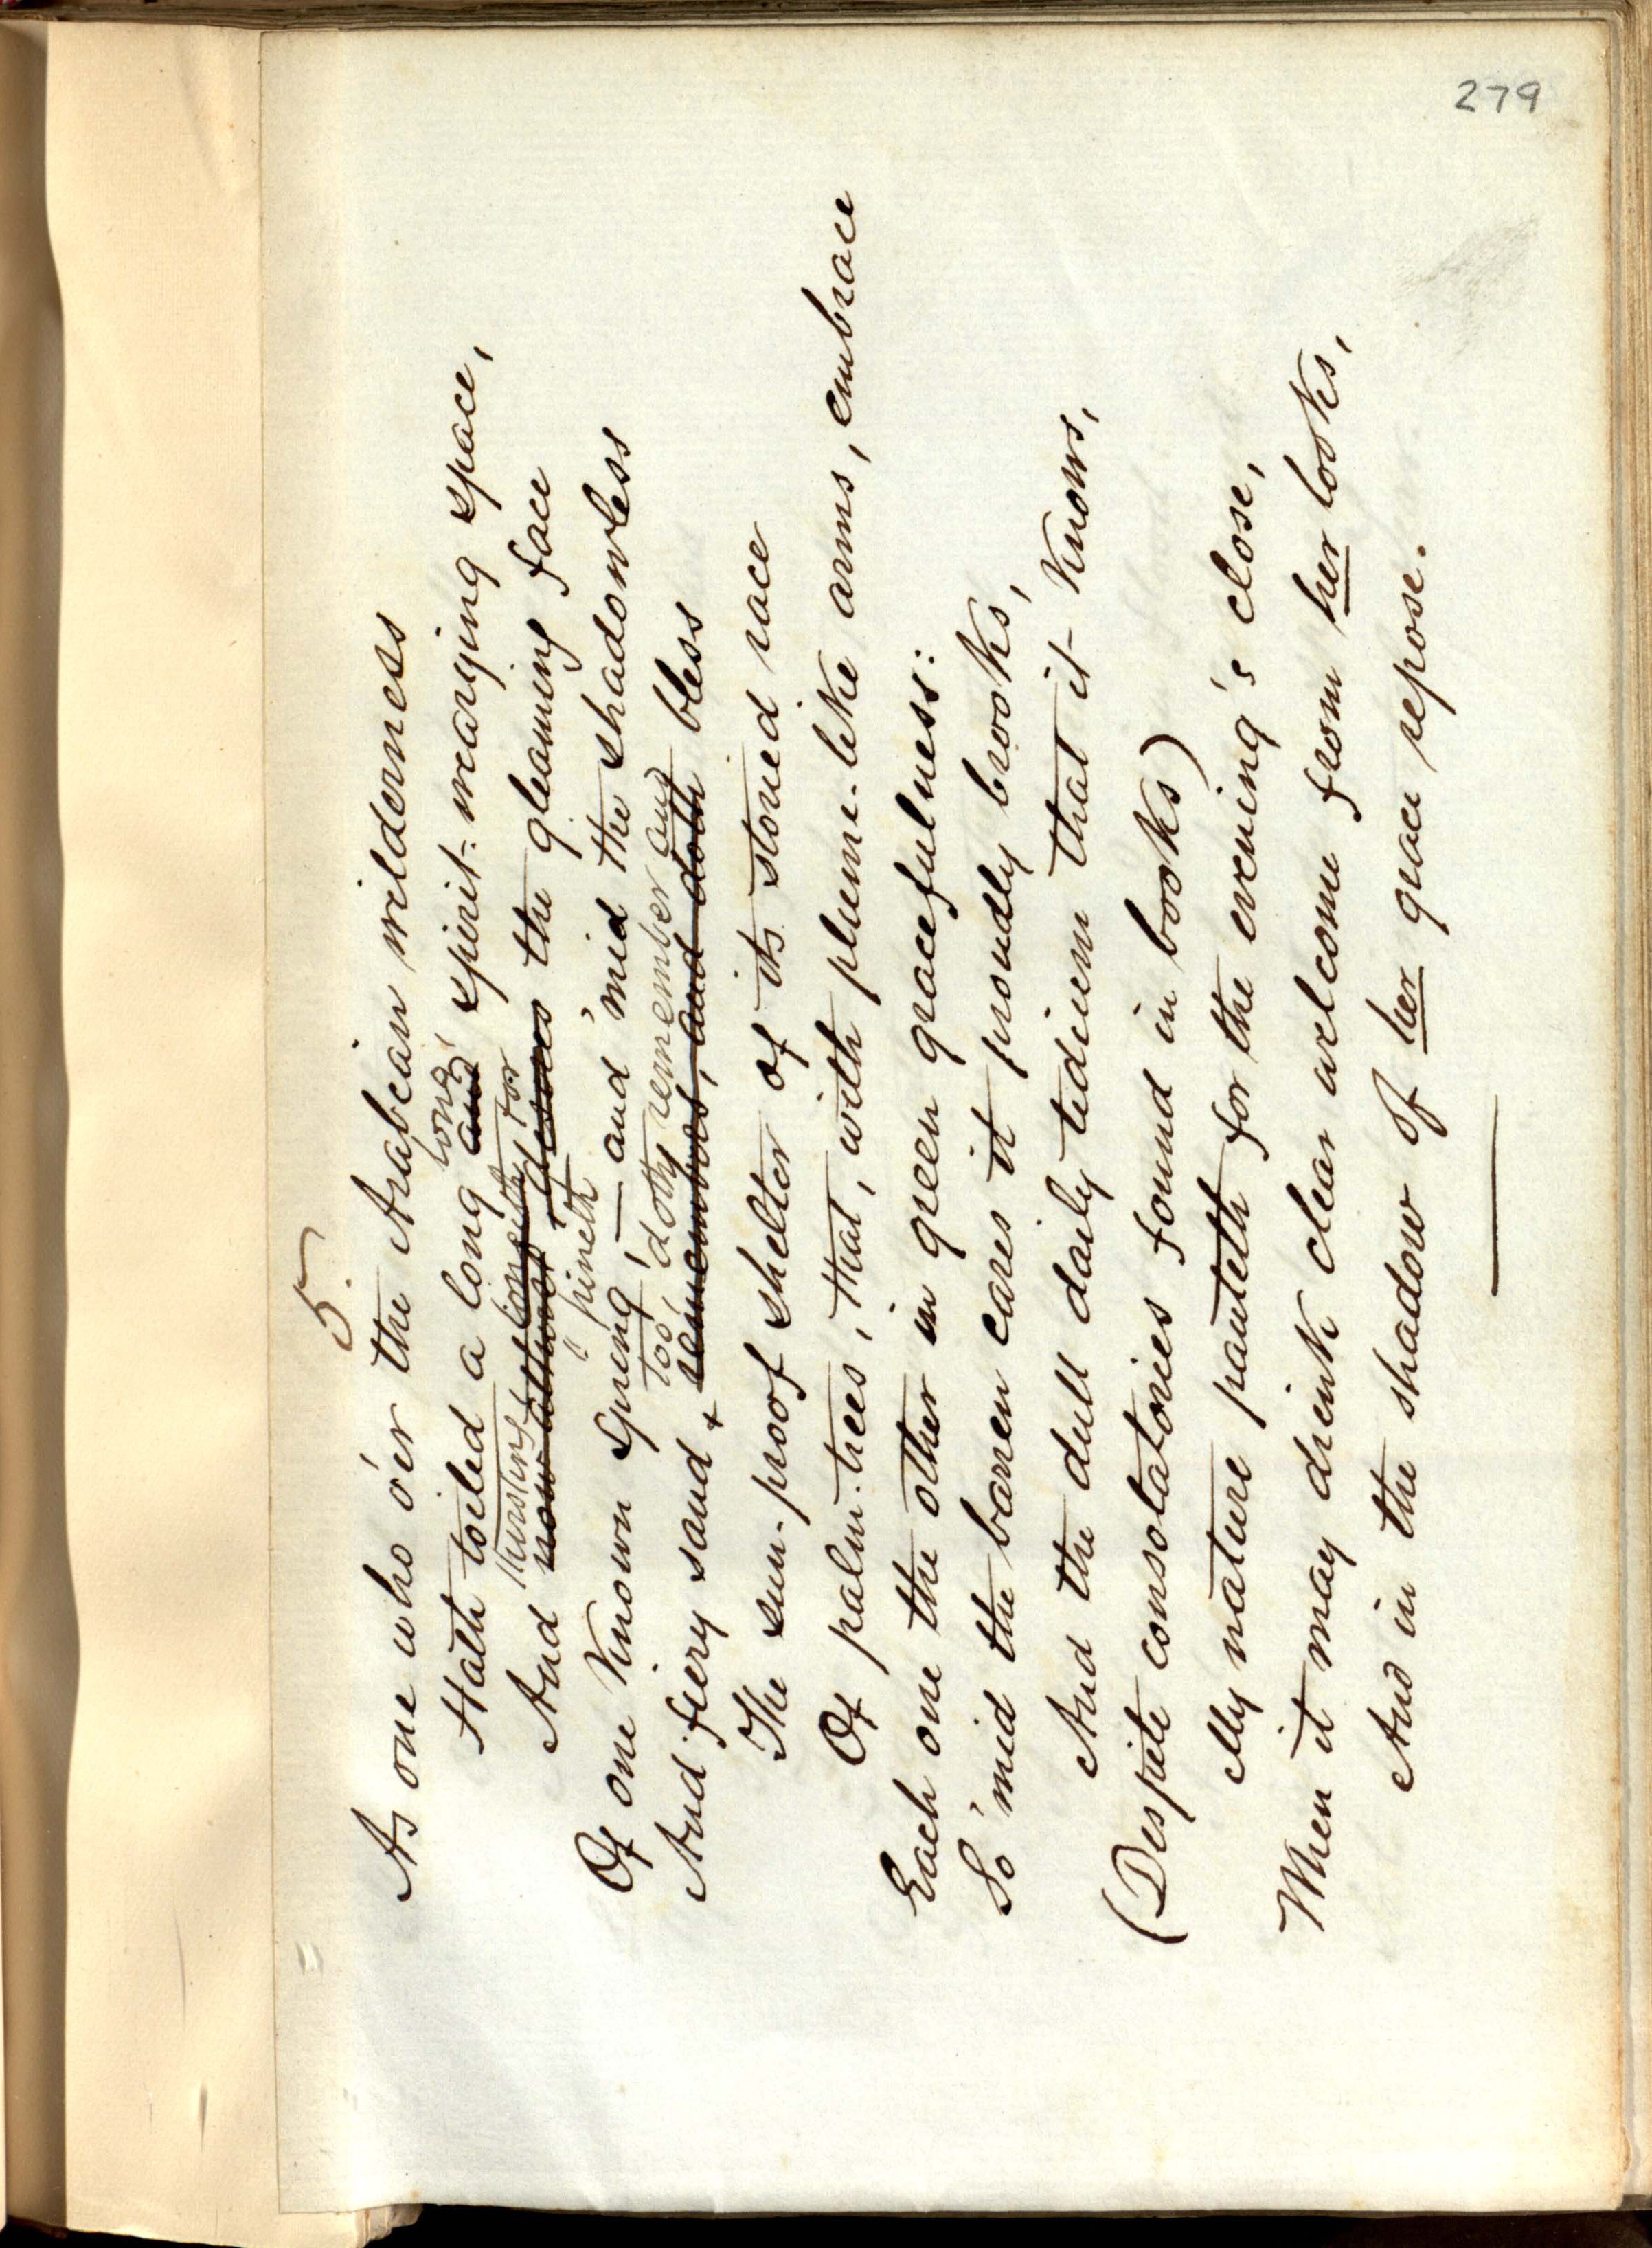 279
5.
As one who o'er the Arabcian wilderness
long
Hath toiled a long and spirit-wearying space,
thirsting longeth for
And now athwart desires the gleaming face
pineth
Of one known Spring, — and 'mid the shadowless
too doth remember and
And fiery sand + remembers, and doth bless
The sun-proof shelter of its storied race
Of palm-trees, that, with plume-like arms, embrace
Each one the other in green gracefulness:
So 'mid the barren cares it proudly brooks,
And the dull daily tedium that it knows,
(Despite consolatories found in books)
My nature panteth for the evening's close,
When it may drink clear welcome from her looks,
And in the shadow of her grace repose.